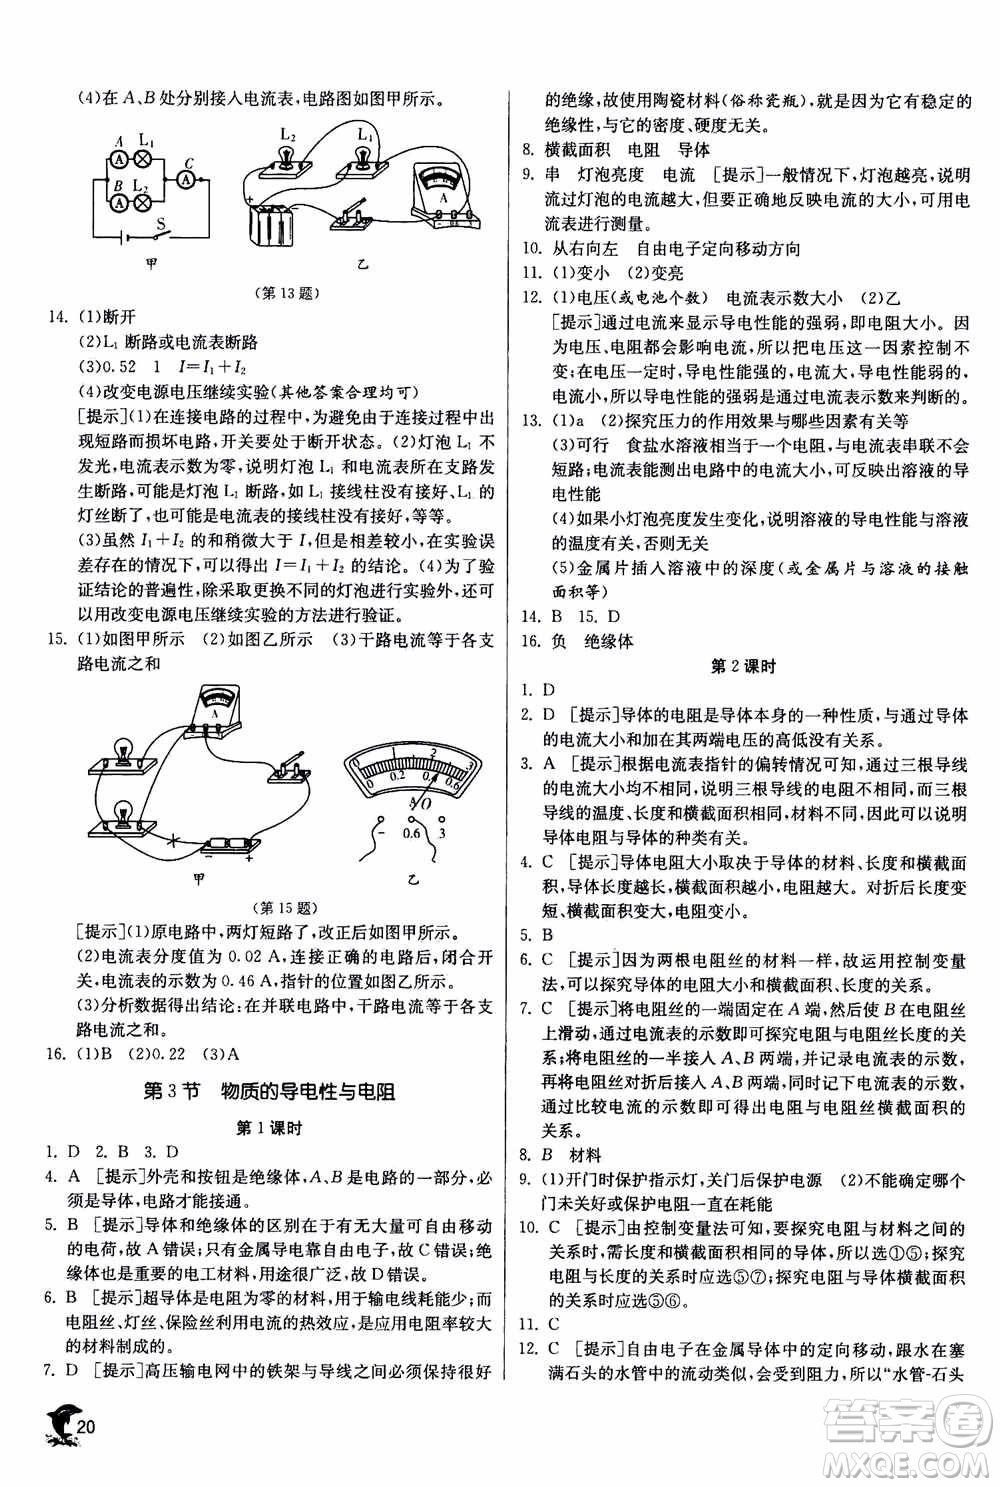 (4)在 A、B 处分别接入电流表,电路图如图甲所示。
A L₁ C
B L₂ S
甲
L₂ L₁
A
乙
(第 13 题)
14. (1)断开
(2)L₁ 断路或电流表断路
(3)0.52 1 I=I₁+I₂
(4)改变电源电压继续实验(其他答案合理均可)
[提示](1)在连接电路的过程中,为避免由于连接过程中出
现短路而损坏电路,开关要处于断开状态。(2)灯泡 L₁ 不
发光,电流表示数为零,说明灯泡 L₁ 或电流表所在支路发
生断路,可能是灯泡 L₁ 断路,如 L₁ 接线柱没有接好或 L₁
灯丝断了,也可能是电流表的接线柱没有接好,等等。
(3)虽然 I₁+I₂ 的和稍微大于 I,但是相差较小,在实验误
差存在的情况下,可以得出 I=I₁+I₂ 的结论。(4)为了验
证结论的普遍性,除采取更换不同的灯泡实验外,还可
以用改变电源电压继续实验的方法进行验证。
15. (1)如图甲所示 (2)如图乙所示 (3)干路电流等于各支
路电流之和
A
甲
0 1 2 3
0 0.2 0.4 0.6
A O
− 0.6 3
乙
(第 15 题)
[提示](1)原电路中,两灯短路了,改正后如图甲所示。
(2)电流表分度值为 0.02 A,连接正确的电路后,闭合开
关,电流表的示数为 0.46 A,指针的位置如图乙所示。
(3)分析数据得出结论:在并联电路中,干路电流等于各支
路电流之和。
16. (1)B (2)0.22 (3)A
第 3 节 物质的导电性与电阻
第 1 课时
1. D 2. B 3. D
4. A [提示]外壳和按钮是绝缘体,A、B 是电路的一部分,必
须是导体,电路才能接通。
5. B [提示]导体和绝缘体的区别在于有无大量可自由移动
的电荷,故 A 错误;只有金属导电靠自由电子,故 C 错误;绝
缘体也是重要的电工材料,用途很广泛,故 D 错误。
6. B [提示]超导体是电阻为零的材料,用于输电线耗能少,而
电阻丝、灯丝、保险丝利用电流的热效应,应用电阻率较大
的材料制成的。
7. D [提示]高压输电网中的铁架与导线之间必须保持很好
20
的绝缘,故使用陶瓷材料(俗称瓷瓶),就是因为它有稳定的
绝缘性,与它的密度、硬度无关。
8. 横截面积 电阻 导体
9. 串 灯泡亮度 电流 [提示]一般情况下,灯泡越亮,说明
流过灯泡的电流越大,但要正确地反映电流的大小,可用电
流表进行测量。
10. 从右向左 自由电子定向移动方向
11. (1)变小 (2)变亮
12. (1)电压(或电池个数) 电流表示数大小 (2)乙
[提示]通过电流来显示导电性能的强弱,即电阻大小。因
为电压、电阻都会影响电流,所以应保持电压这一因素不
变;在电压一定时,导电性能强的,电流大,导电性能弱的,
电流小,所以导电性能是根据电流表示数来判断的。
13. (1)a (2)探究压力的作用效果与哪些因素有关等
(3)可行 食盐水溶液相当于一个电阻,与电流表串联不会
短路;电流表能测出电路中的电流大小,可反映出溶液的导
电性能
(4)如果小灯泡亮度发生变化,说明溶液的导电性能与溶液
的温度有关,否则无关
(5)金属片插入溶液中的深度(或金属片与溶液的接触
面积等)
14. B 15. D
16. 负 绝缘体
第 2 课时
1. D
2. D [提示]导体的电阻是导体本身的一种性质,与通过导体
的电流大小和加在其两端电压的高低没有关系。
3. A [提示]根据电流表指针的偏转情况可知,通过三根导线
的电流大小均不相同,说明三根导线的电阻不同,而三根
导线的温度、长度和横截面积相同,材料不同,所以可以说明
导体电阻与导体的种类有关。
4. C [提示]导体电阻大小取决于导体的材料、长度和横截面
积,导体长度越长,横截面积越小,电阻越大。对折后长度变
短、横截面积变大,电阻变小。
5. B
6. C [提示]因为两根电阻丝的材料一样,故运用控制变量
法,可以研究导体的电阻大小与材料没有关系。
7. C [提示]将电阻丝的一端固定在 A 端,然后使 B 在电阻丝
上滑动,通过电流表的示数即可探究电阻与电阻丝长度的关
系;将电阻丝的一半接入 A、B 两端,并记录电流表的示数,
再将电阻丝对折后接入 A、B 两端,记下此时电流表的示数,
通过比较电流表的示数即可得出电阻与电阻丝横截面积的
关系。
8. B 材料
9. (1)开门时保护指示灯,关门后保护电源 (2)不能确定
门未关好或保护电阻一直在耗能
10. C [提示]由控制变量法可知,要探究电阻与材料之间的
关系时,需长度和横截面积相同的导体,所以选①⑤;探究
电阻与长度的关系时应选⑤⑦;探究电阻与导体横截面积
的关系时应选⑤⑥。
11. C
12. C [提示]自由电子在金属导体中的定向移动,跟水在塞
满石头的水管中的流动类似,会受到阻力,所以“水管-石头
答案卷
MXQE.COM